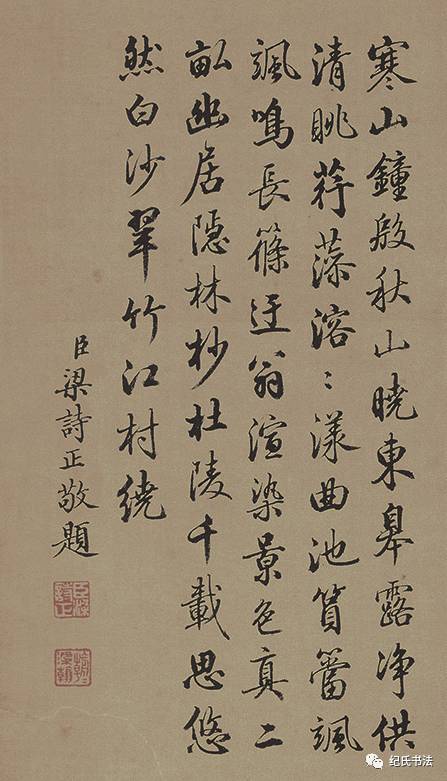 寒山鐘殷秋山曉東皋露净供
清眺荇藻溶〻漾曲池篔簹颯
颯鳴長篠迂翁渲染景色真二
畝幽居隱林杪杜陵千載思悠
然白沙翠竹江村繞
臣梁詩正敬題
臣梁詩正
朝〻染翰
纪氏书法